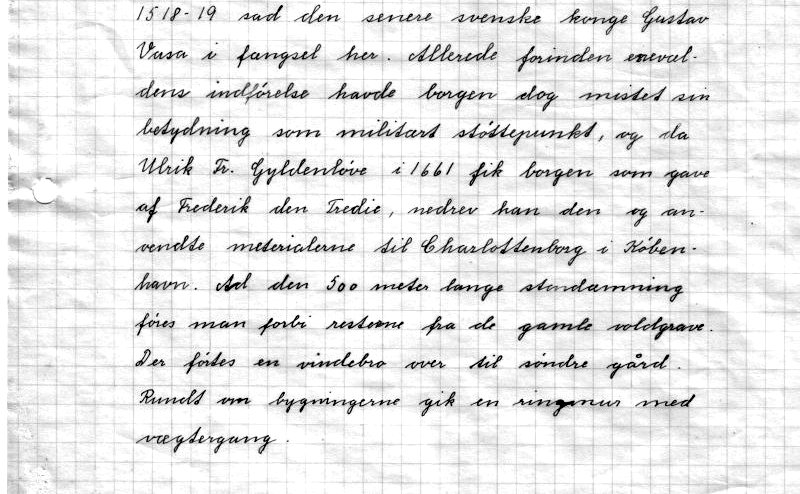 1518-19 sad den senere svenske konge Gustav
Vasa i fængsel her. Allerede forinden enevæl-
dens indförelse havde borgen dog mistet sin
betydning som militært stöttepunkt, og da
Ulrik Fr. Gyldenlöve i 1661 fik borgen som gave
af Frederik den Tredie, nedrev han den og an-
vendte meterialerne til Charlottenborg i Köben-
havn. Ad den 500 meter lange stendæmning
föres man forbi resterne fra de gamle voldgrave.
Der förtes en vindebro over til söndre gård.
Rundt om bygningerne gik en ringmur med
vægtergang.